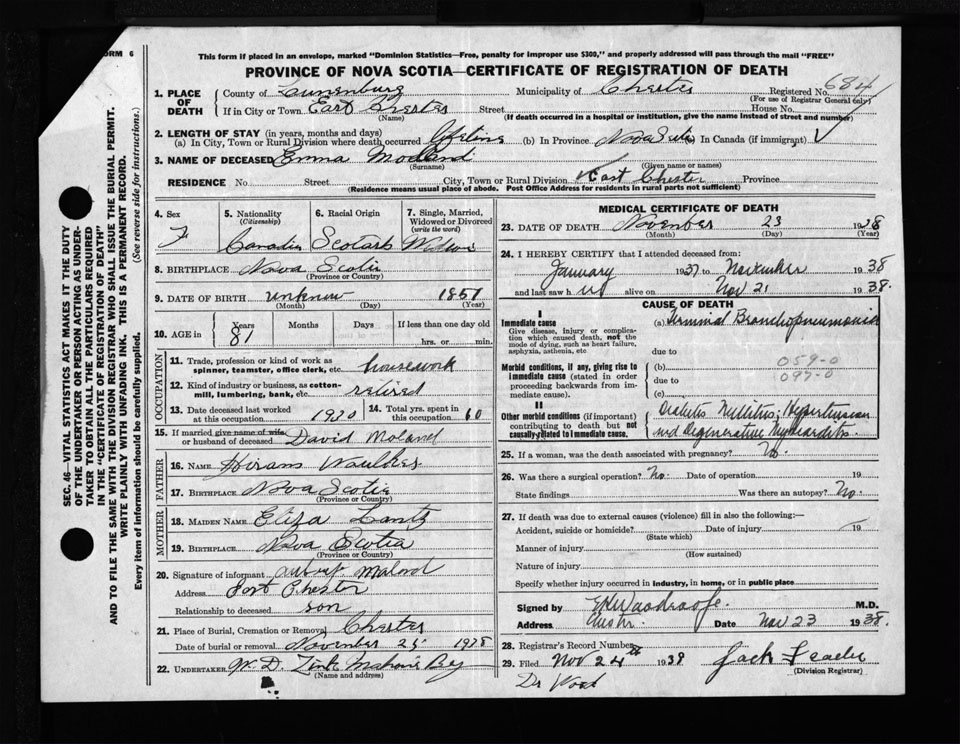 FORM 6
This form if placed in an envelope, marked "Dominion Statistics—Free, penalty for improper use $300," and properly addressed will pass through the mail "FREE"
PROVINCE OF NOVA SCOTIA—CERTIFICATE OF REGISTRATION OF DEATH
684
1. PLACE OF DEATH County of Lunenburg Municipality of Chester Registered No.
(For use of Registrar General only)
If in City or Town East Chester Street House No.
(Name) (If death occurred in a hospital or institution, give the name instead of street and number)
2. LENGTH OF STAY (in years, months and days)
(a) In City, Town or Rural Division where death occurred lifetime (b) In Province Nova Scotia In Canada (if immigrant)
3. NAME OF DECEASED Emma Morland
(Surname) (Given name or names)
RESIDENCE No. Street City, Town or Rural Division East Chester Province
(Residence means usual place of abode. Post Office Address for residents in rural parts not sufficient)
4. Sex F
5. Nationality (Citizenship) Canadian
6. Racial Origin
7. Single, Married, Widowed or Divorced (write the word) Widow
8. BIRTHPLACE Nova Scotia
(Province or Country)
9. DATE OF BIRTH unknown 1857
(Month) (Day) (Year)
10. AGE in Years Months Days If less than one day old
81 hrs. or min.
OCCUPATION
11. Trade, profession or kind of work as spinner, teamster, office clerk, etc. housework
12. Kind of industry or business, as cotton-mill, lumbering, bank, etc. retired
13. Date deceased last worked at this occupation 1920
14. Total yrs. spent in this occupation 60
15. If married give name of wife or husband of deceased David Moland
FATHER
16. NAME Hiram
17. BIRTHPLACE Nova Scotia
(Province or Country)
MOTHER
18. MAIDEN NAME Eliza Lantz
19. BIRTHPLACE Nova Scotia
(Province or Country)
20. Signature of informant Moland
Address East Chester
Relationship to deceased son
21. Place of Burial, Cremation or Removal Chester
Date of burial or removal November 25 1938
22. UNDERTAKER W. D. Zink Mahone Bay
(Name and address)
MEDICAL CERTIFICATE OF DEATH
23. DATE OF DEATH November 23 1938
(Month) (Day) (Year)
24. I HEREBY CERTIFY that I attended deceased from:
January 1937 to November 1938
and last saw her alive on Nov 21 1938.
CAUSE OF DEATH
I
Immediate cause
Give disease, injury or complication which caused death, not the mode of dying, such as heart failure, asphyxia, asthenia, etc
(a) Terminal Bronchopneumonia
due to
Morbid conditions, if any, giving rise to immediate cause (stated in order proceeding backwards from immediate cause).
(b) 059-0
due to 097-0
(c)
II
Other morbid conditions (if important) contributing to death but not causally related to immediate cause.
Diabetes Mellitus; Hypertension and Degenerative Myocarditis
25. If a woman, was the death associated with pregnancy? No.
26. Was there a surgical operation? No. Date of operation 19
State findings Was there an autopsy? No.
27. If death was due to external causes (violence) fill in also the following:—
Accident, suicide or homicide? Date of injury 19
(State which)
Manner of injury
(How sustained)
Nature of injury
Specify whether injury occurred in industry, in home, or in public place
Signed by M.D.
Address Chester Date Nov 23 1938.
28. Registrar's Record Number
29. Filed Nov 24th 1938
(Division Registrar)
Dr Wood
SEC. 46—VITAL STATISTICS ACT MAKES IT THE DUTY OF THE UNDERTAKER OR PERSON ACTING AS UNDERTAKER TO OBTAIN ALL THE PARTICULARS REQUIRED IN THE "CERTIFICATE OF REGISTRATION OF DEATH" AND TO FILE THE SAME WITH THE DIVISION REGISTRAR WHO SHALL ISSUE THE BURIAL PERMIT.
WRITE PLAINLY WITH UNFADING INK. THIS IS A PERMANENT RECORD.
Every item of information should be carefully supplied. (See reverse side for instructions.)